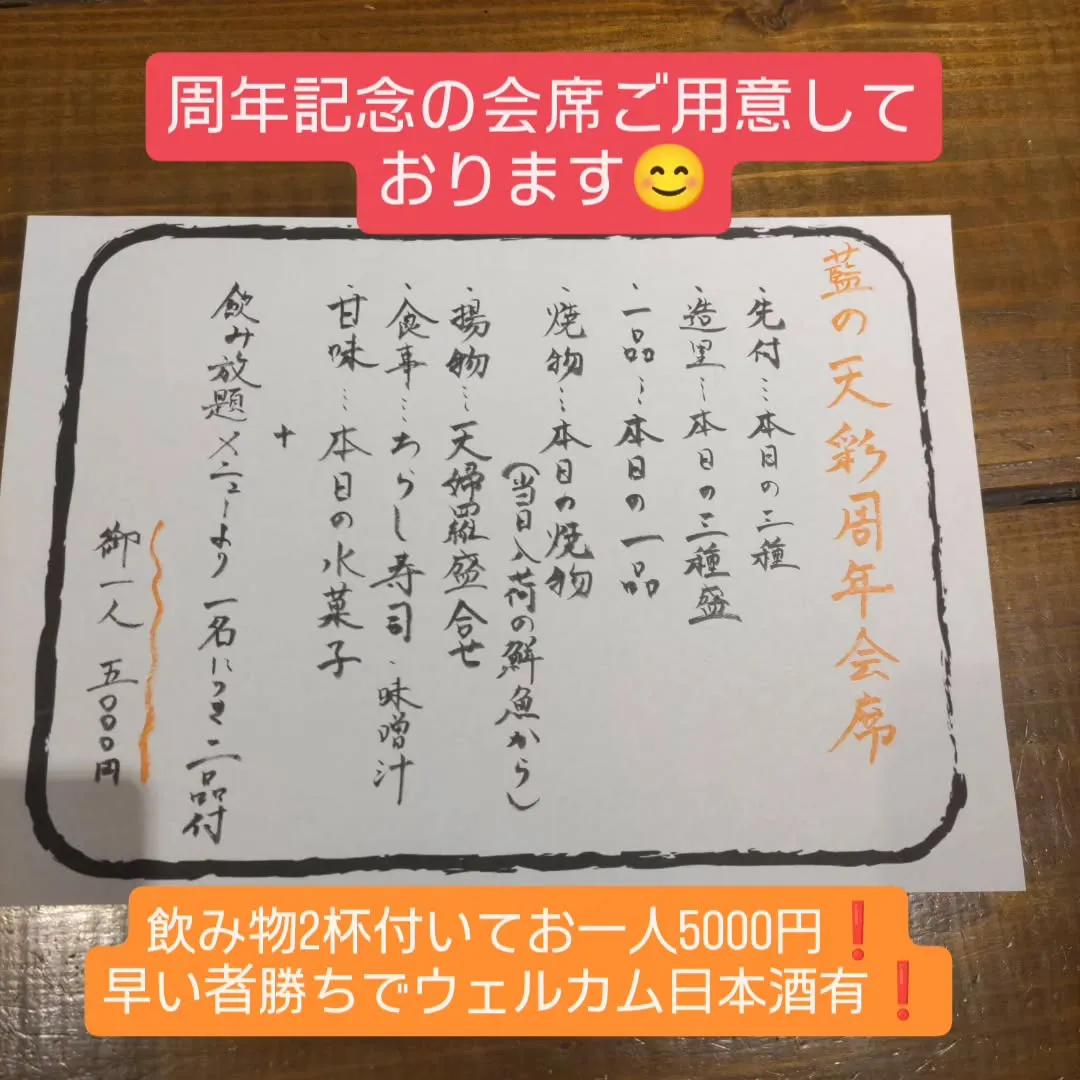 周年記念の会席ご用意して
おります😊
藍の天彩周年会席
・先付…本日の三種
・造里…本日の三種盛
・一品…本日の一品
・焼物…本日の焼物
(当日入荷の鮮魚から)
・揚物…天婦羅盛合せ
・食事…ちらし寿司・味噌汁
・甘味…本日の水菓子
+
飲み放題メニューより一名につき二品付
御一人 五〇〇〇円
飲み物2杯付いてお一人5000円❗
早い者勝ちでウェルカム日本酒有❗